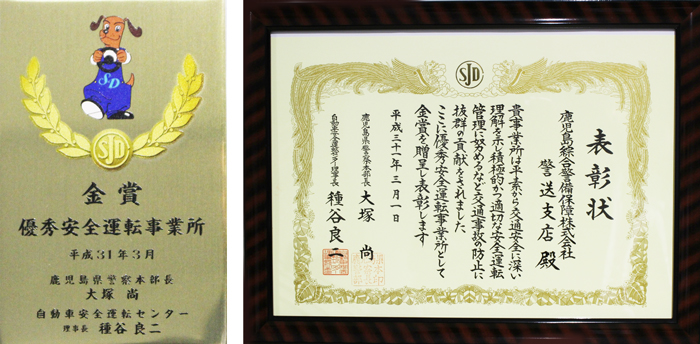 SD
SJD
金賞
優秀安全運転事業所
平成31年3月
鹿児島県警察本部長
大塚 尚
自動車安全運転センター
理事長 種谷良二
SJD
表彰状
鹿児島綜合警備保障株式会社
警送支店殿
貴事業所は平素から交通安全に深い
理解を示し積極的かつ適切な安全運転
管理に努めるなど交通事故の防止に
抜群の貢献をされました
ここに優秀安全運転事業所として
金賞を贈呈し表彰します
平成三十一年三月一日
鹿児島県警察本部長 大塚 尚
自動車安全運転センター理事長 種谷良二